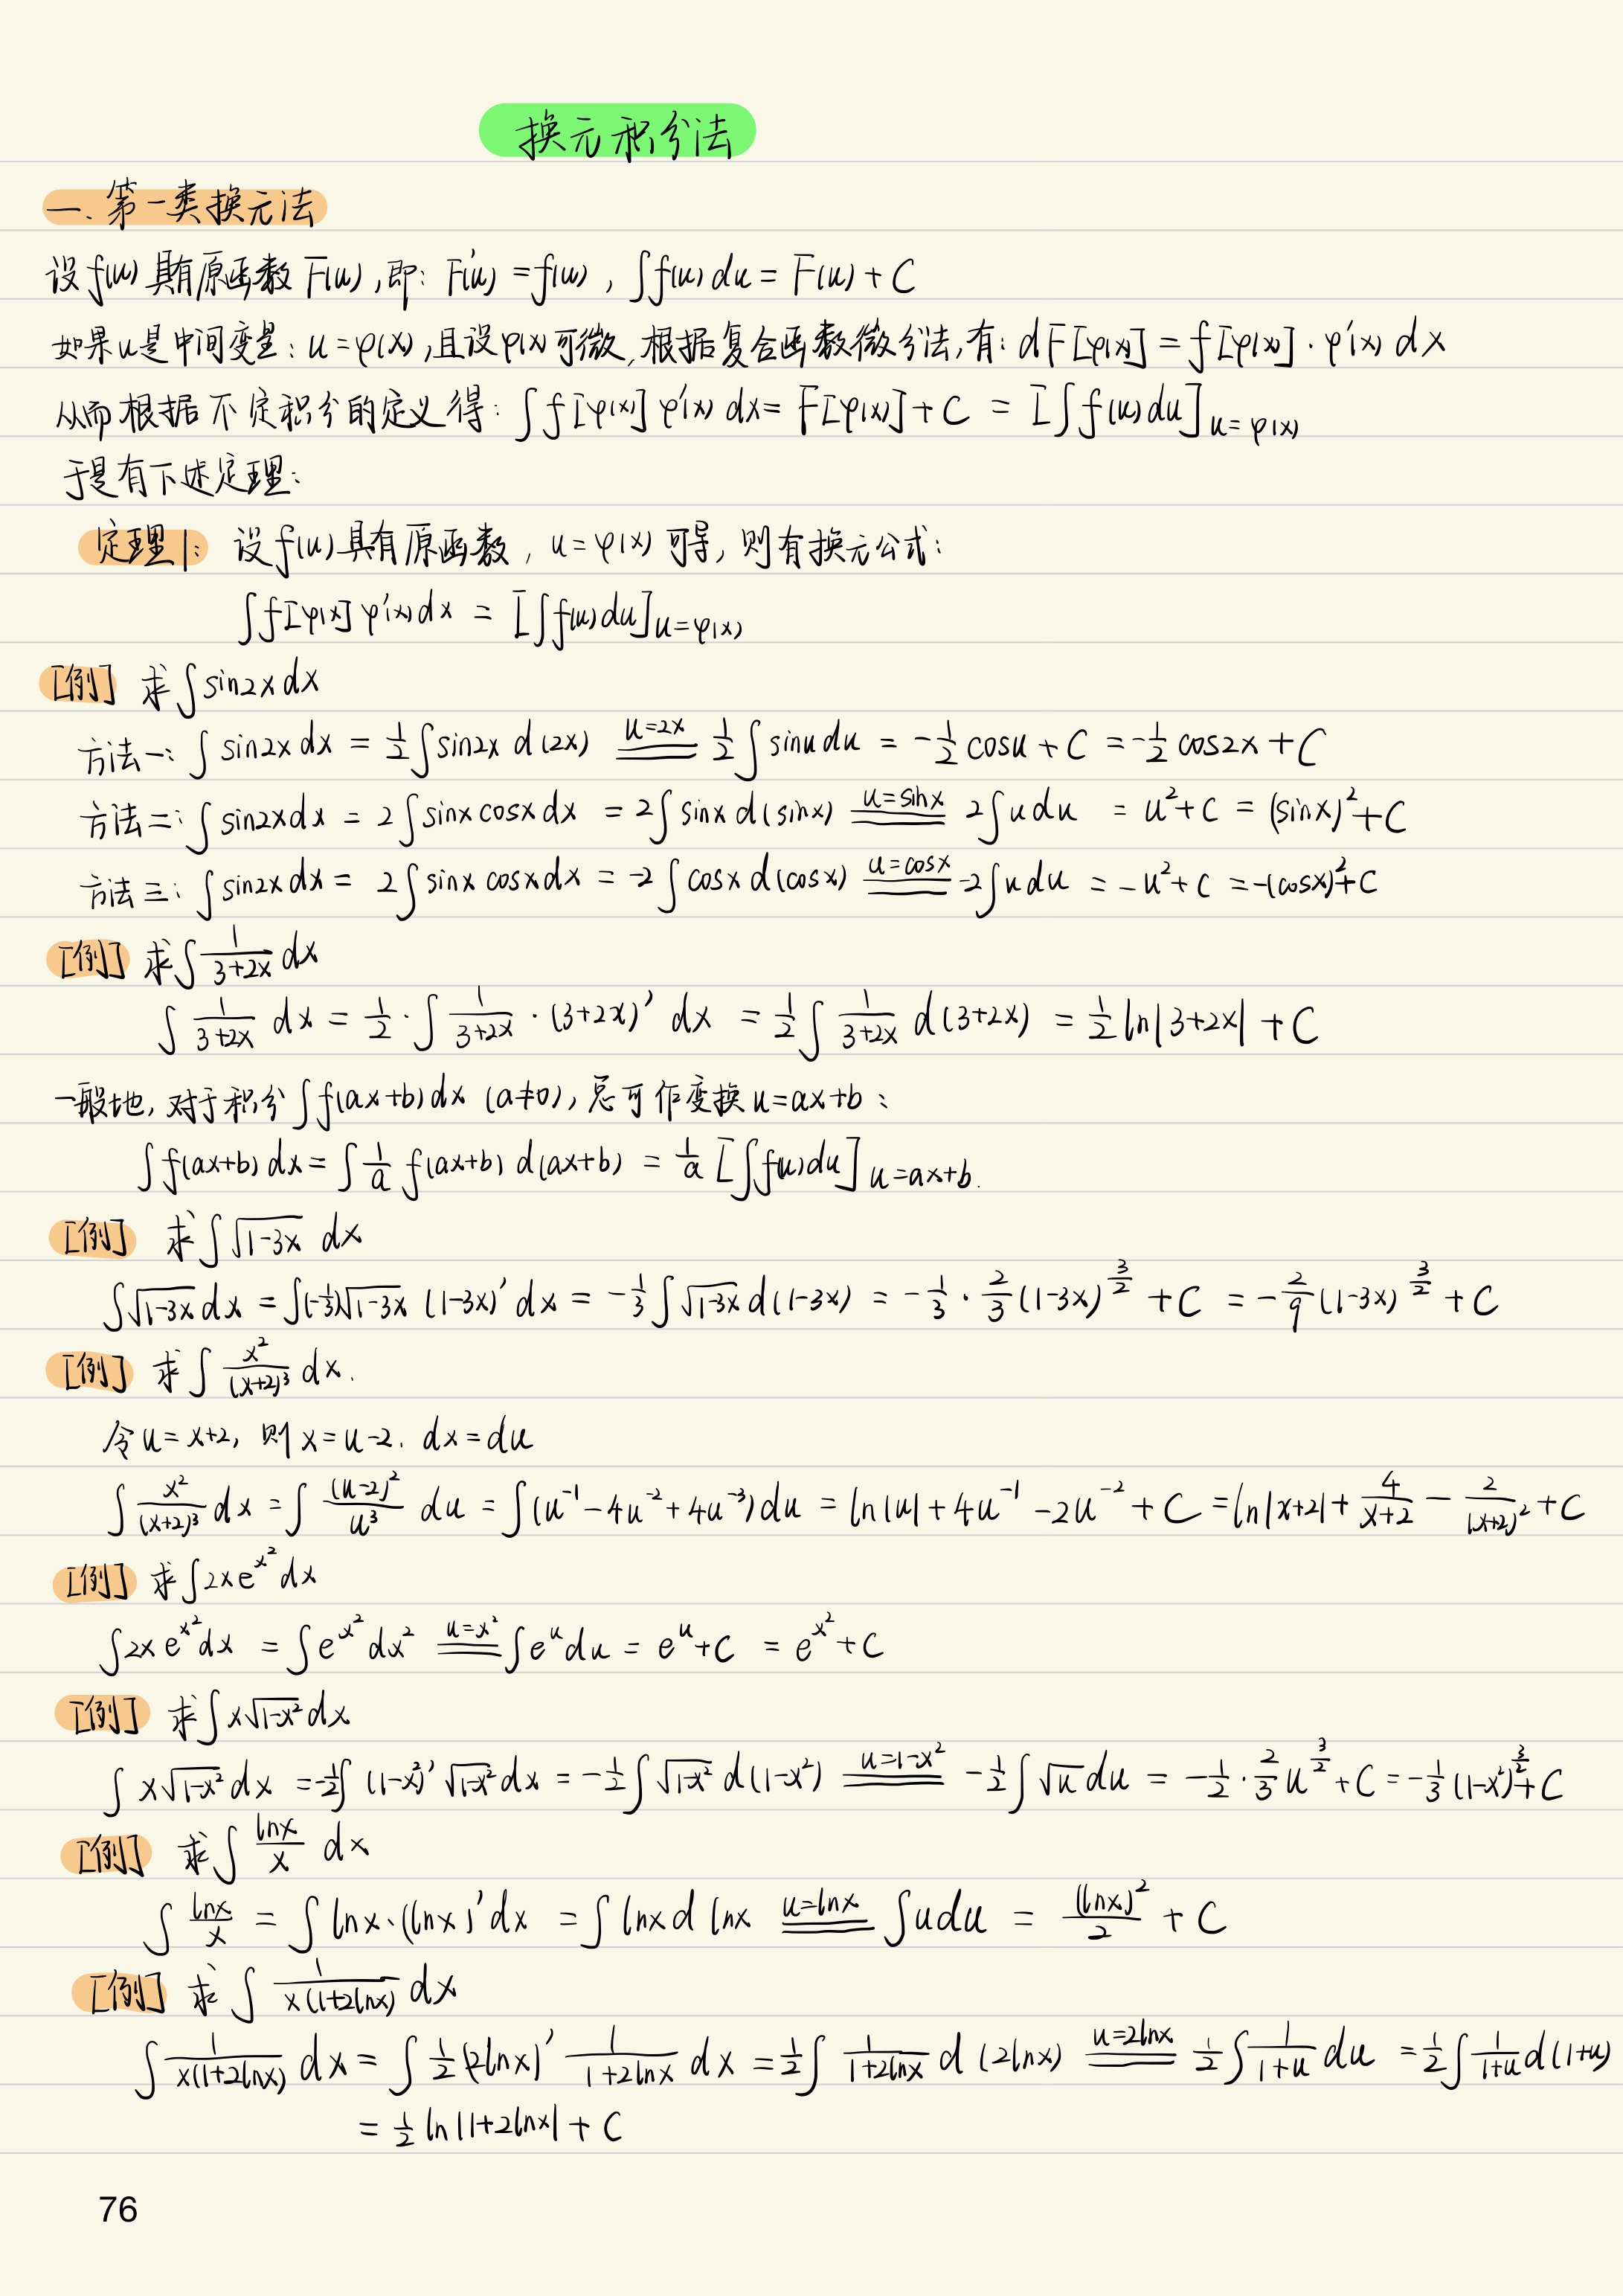 换元积分法
一. 第一类换元法
设f(u)具有原函数F(u),即: F'(u)=f(u), ∫f(u)du=F(u)+C
如果u是中间变量: u=φ(x),且设φ(x)可微,根据复合函数微分法,有: dF[φ(x)]=f[φ(x)]·φ'(x)dx
从而根据不定积分的定义得: ∫f[φ(x)]φ'(x)dx=F[φ(x)]+C=[∫f(u)du]_{u=φ(x)}
于是有下述定理:
定理1: 设f(u)具有原函数, u=φ(x)可导, 则有换元公式:
∫f[φ(x)]φ'(x)dx=[∫f(u)du]_{u=φ(x)}
[例] 求∫sin2xdx
方法一: ∫sin2xdx = 1/2∫sin2x d(2x) \xlongequal{u=2x} 1/2∫sinudu = -1/2cosu+C = -1/2cos2x+C
方法二: ∫sin2xdx = 2∫sinxcosxdx = 2∫sinxd(sinx) \xlongequal{u=sinx} 2∫udu = u²+C = (sinx)²+C
方法三: ∫sin2xdx = 2∫sinxcosxdx = -2∫cosxd(cosx) \xlongequal{u=cosx} -2∫udu = -u²+C = -(cosx)²+C
[例] 求∫1/(3+2x) dx
∫1/(3+2x) dx = 1/2·∫1/(3+2x)·(3+2x)' dx = 1/2∫1/(3+2x) d(3+2x) = 1/2 ln|3+2x|+C
一般地, 对于积分∫f(ax+b)dx (a≠0), 总可作变换u=ax+b:
∫f(ax+b)dx=∫1/a f(ax+b)d(ax+b) = 1/a[∫f(u)du]_{u=ax+b}.
[例] 求∫√(1-3x) dx
∫√(1-3x)dx = ∫(-1/3)√(1-3x) (1-3x)'dx = -1/3∫√(1-3x)d(1-3x) = -1/3·2/3(1-3x)^{3/2}+C = -2/9(1-3x)^{3/2}+C
[例] 求∫x²/(x+2)³ dx.
令u=x+2, 则x=u-2. dx=du
∫x²/(x+2)³ dx = ∫(u-2)²/u³ du = ∫(u⁻¹-4u⁻²+4u⁻³)du = ln|u|+4u⁻¹-2u⁻²+C = ln|x+2|+4/(x+2)-2/(x+2)²+C
[例] 求∫2xe^{x²}dx
∫2xe^{x²}dx = ∫e^{x²}dx² \xlongequal{u=x²} ∫e^u du = e^u+C = e^{x²}+C
[例] 求∫x√(1-x²)dx
∫x√(1-x²)dx = -1/2∫(1-x²)'√(1-x²)dx = -1/2∫√(1-x²) d(1-x²) \xlongequal{u=1-x²} -1/2∫√u du = -1/2·2/3u^{3/2}+C = -1/3(1-x²)^{3/2}+C
[例] 求∫lnx/x dx
∫lnx/x = ∫lnx·(lnx)'dx = ∫lnxd lnx \xlongequal{u=lnx} ∫udu = (lnx)²/2+C
[例] 求∫1/(x(1+2lnx)) dx
∫1/(x(1+2lnx)) dx = ∫1/2(2lnx)' 1/(1+2lnx) dx = 1/2∫1/(1+2lnx) d(2lnx) \xlongequal{u=2lnx} 1/2∫1/(1+u) du = 1/2∫1/(1+u) d(1+u)
= 1/2 ln|1+2lnx|+C
76